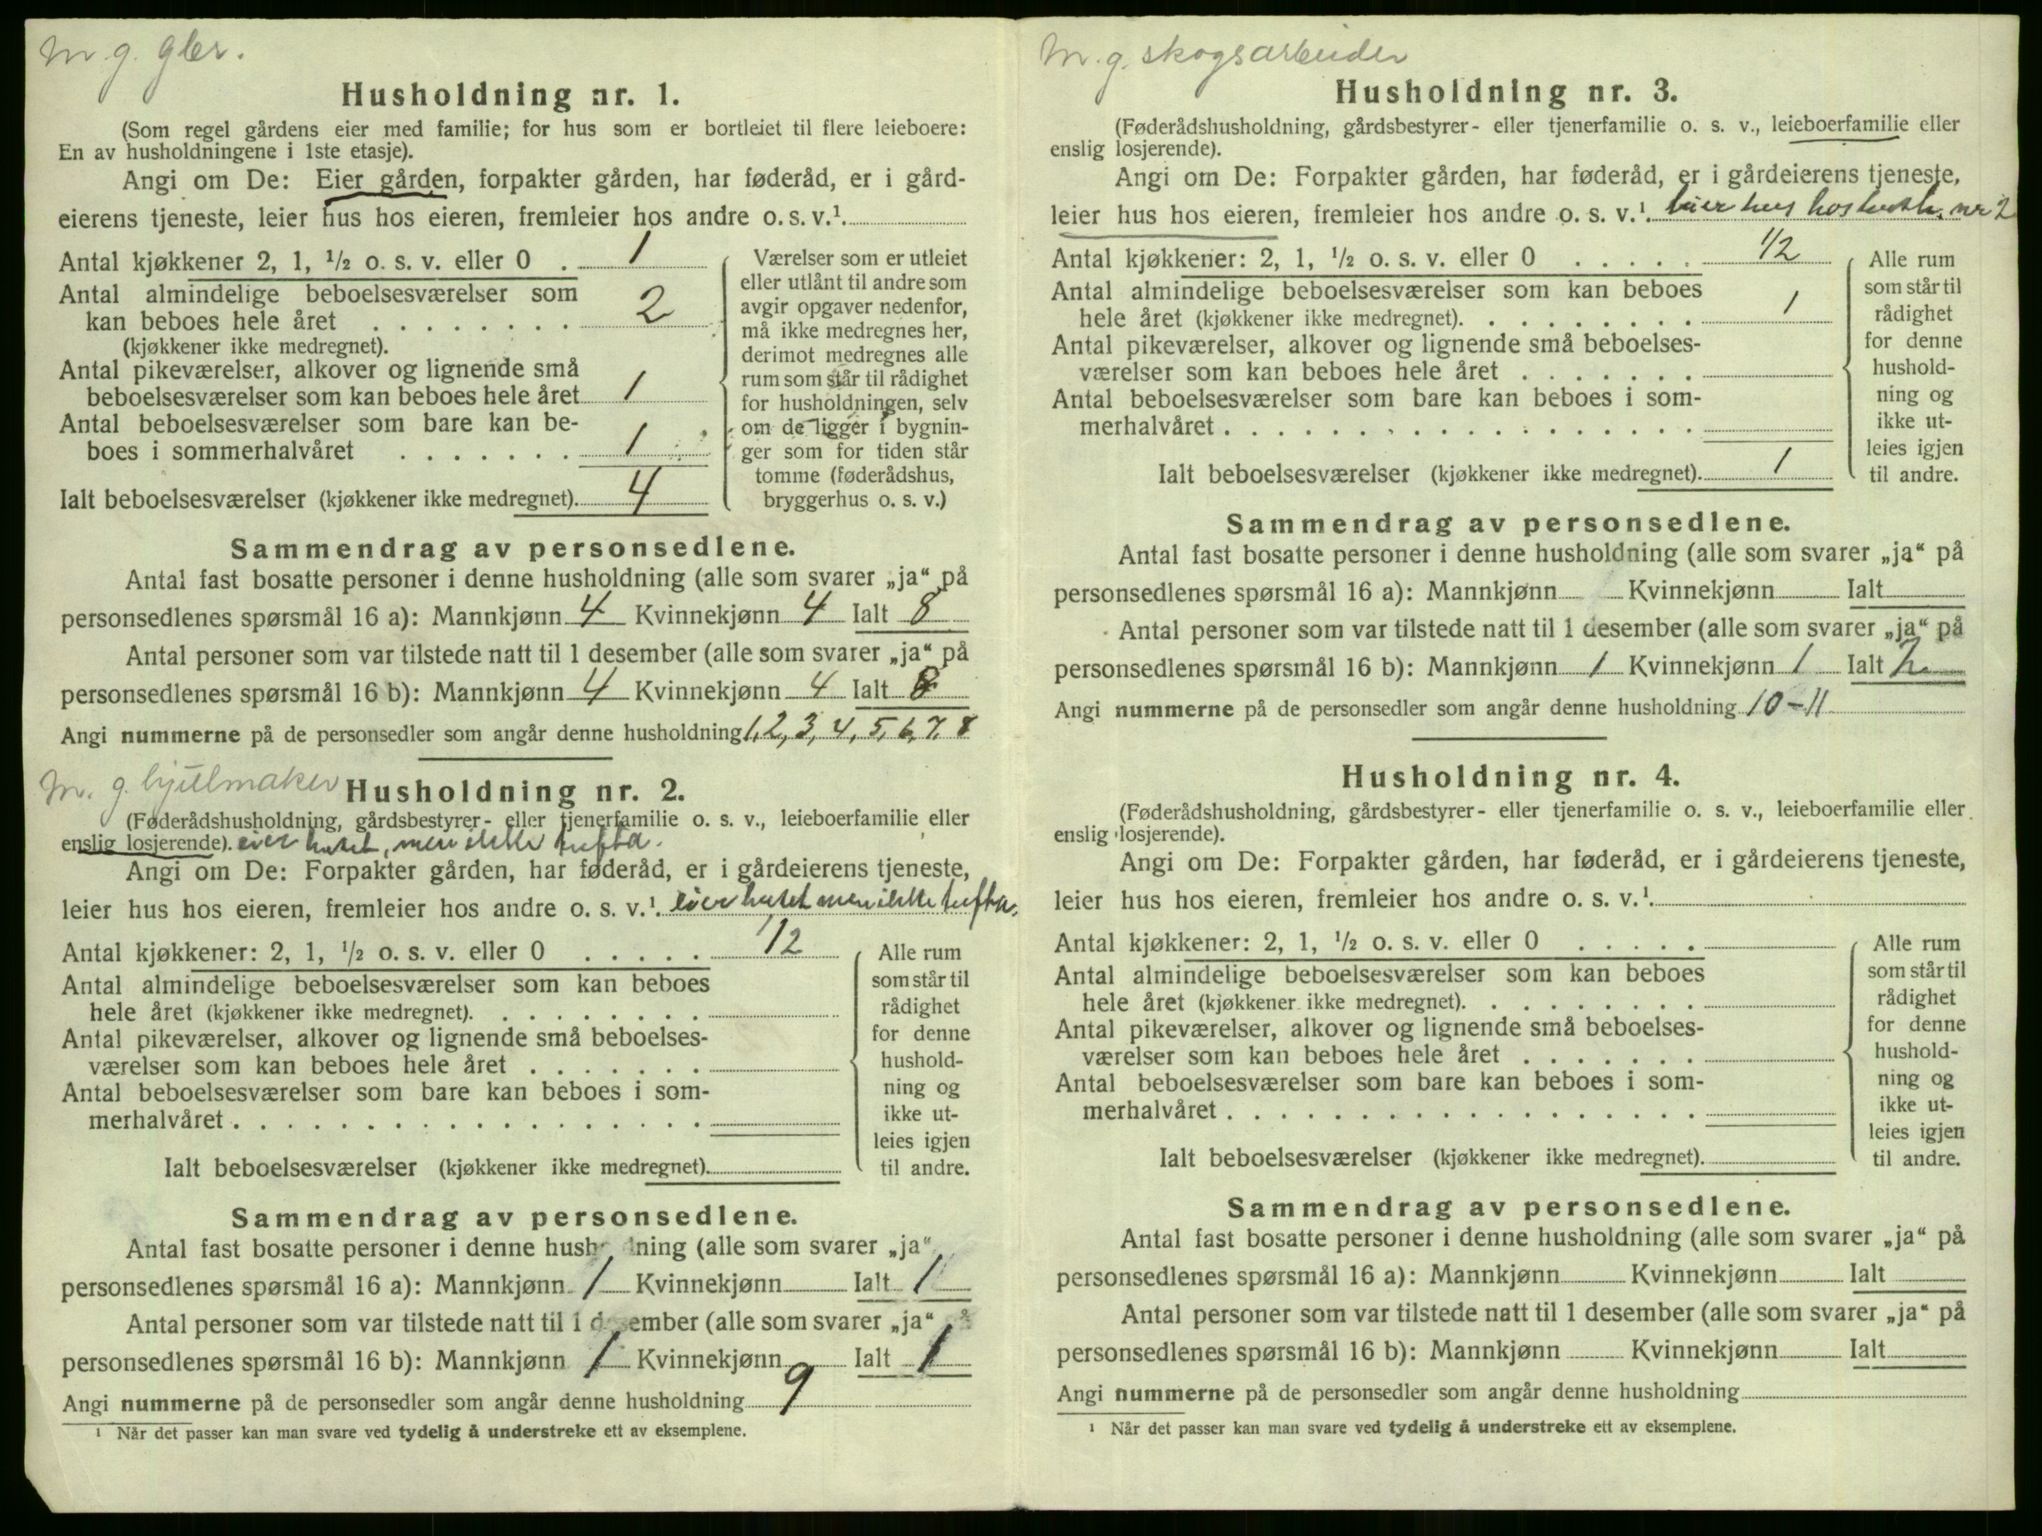 M g. gbr.
Husholdning nr. 1.
(Som regel gårdens eier med familie; for hus som er bortleiet til flere leieboere:
En av husholdningene i 1ste etasje).
Angi om De: Eier gården, forpakter gården, har føderåd, er i gård-
eierens tjeneste, leier hus hos eieren, fremleier hos andre o. s. v.¹
Antal kjøkkener 2, 1, ½ o. s. v. eller 0 . 1
Antal almindelige beboelsesværelser som
kan beboes hele året . . . . . . . . 2
(kjøkkener ikke medregnet).
Antal pikeværelser, alkover og lignende små
beboelsesværelser som kan beboes hele året 1
Antal beboelsesværelser som bare kan be-
boes i sommerhalvåret . . . . . . . 1
Ialt beboelsesværelser (kjøkkener ikke medregnet). 4
Værelser som er utleiet
eller utlånt til andre som
avgir opgaver nedenfor,
må ikke medregnes her,
derimot medregnes alle
rum som står til rådighet
for husholdningen, selv
om de ligger i bygnin-
ger som for tiden står
tomme (føderådshus,
bryggerhus o. s. v.)
Sammendrag av personsedlene.
Antal fast bosatte personer i denne husholdning (alle som svarer „ja“ på
personsedlenes spørsmål 16 a): Mannkjønn 4 Kvinnekjønn 4 Ialt 8
Antal personer som var tilstede natt til 1 desember (alle som svarer „ja“ på
personsedlenes spørsmål 16 b): Mannkjønn 4 Kvinnekjønn 4 Ialt 8
Angi nummerne på de personsedler som angår denne husholdning 1, 2, 3, 4, 5, 6, 7, 8
M. g. hjulmaker
Husholdning nr. 2.
(Føderådshusholdning, gårdsbestyrer- eller tjenerfamilie o. s. v., leieboerfamilie eller
enslig losjerende). eier huset, men ikke tufta.
Angi om De: Forpakter gården, har føderåd, er i gårdeierens tjeneste,
leier hus hos eieren, fremleier hos andre o. s. v.¹ eier huset men ikke tufta.
Antal kjøkkener: 2, 1, ½ o. s. v. eller 0 . . . . . 1/2
Antal almindelige beboelsesværelser som kan beboes
hele året (kjøkkener ikke medregnet). . . . . . . . .
Antal pikeværelser, alkover og lignende små beboelses-
værelser som kan beboes hele året . . . . . . .
Antal beboelsesværelser som bare kan beboes i som-
merhalvåret . . . . . . . . . . . . . . . . . .
Ialt beboelsesværelser (kjøkkener ikke medregnet).
Alle rum
som står til
rådighet
for denne
hushold-
ning og
ikke ut-
leies igjen
til andre.
Sammendrag av personsedlene.
Antal fast bosatte personer i denne husholdning (alle som svarer „ja“
personsedlenes spørsmål 16 a): Mannkjønn 1 Kvinnekjønn Ialt 1
Antal personer som var tilstede natt til 1 desember (alle som svarer „ja“ på
personsedlenes spørsmål 16 b): Mannkjønn 1 Kvinnekjønn Ialt 1
Angi nummerne på de personsedler som angår denne husholdning 9
¹ Når det passer kan man svare ved tydelig å understreke ett av eksemplene.
M. g. skogsarbeider
Husholdning nr. 3.
(Føderådshusholdning, gårdsbestyrer- eller tjenerfamilie o. s. v., leieboerfamilie eller
enslig losjerende).
Angi om De: Forpakter gården, har føderåd, er i gårdeierens tjeneste,
leier hus hos eieren, fremleier hos andre o. s. v.¹ leier hus hos hush. nr 2
Antal kjøkkener: 2, 1, ½ o. s. v. eller 0 . . . . . 1/2
Antal almindelige beboelsesværelser som kan beboes
hele året (kjøkkener ikke medregnet). . . . . . . . . 1
Antal pikeværelser, alkover og lignende små beboelses-
værelser som kan beboes hele året . . . . . . .
Antal beboelsesværelser som bare kan beboes i som-
merhalvåret . . . . . . . . . . . . . . . . . .
Ialt beboelsesværelser (kjøkkener ikke medregnet). 1
Alle rum
som står til
rådighet
for denne
hushold-
ning og
ikke ut-
leies igjen
til andre.
Sammendrag av personsedlene.
Antal fast bosatte personer i denne husholdning (alle som svarer „ja“ på
personsedlenes spørsmål 16 a): Mannkjønn Kvinnekjønn Ialt
Antal personer som var tilstede natt til 1 desember (alle som svarer „ja“ på
personsedlenes spørsmål 16 b): Mannkjønn 1 Kvinnekjønn 1 Ialt 2
Angi nummerne på de personsedler som angår denne husholdning 10-11
Husholdning nr. 4.
(Føderådshusholdning, gårdsbestyrer- eller tjenerfamilie o. s. v., leieboerfamilie eller
enslig losjerende).
Angi om De: Forpakter gården, har føderåd, er i gårdeierens tjeneste,
leier hus hos eieren, fremleier hos andre o. s. v.¹
Antal kjøkkener: 2, 1, ½ o. s. v. eller 0 . . . . .
Antal almindelige beboelsesværelser som kan beboes
hele året (kjøkkener ikke medregnet). . . . . . . . .
Antal pikeværelser, alkover og lignende små beboelses-
værelser som kan beboes hele året . . . . . . .
Antal beboelsesværelser som bare kan beboes i som-
merhalvåret . . . . . . . . . . . . . . . . . .
Ialt beboelsesværelser (kjøkkener ikke medregnet).
Alle rum
som står til
rådighet
for denne
hushold-
ning og
ikke ut-
leies igjen
til andre.
Sammendrag av personsedlene.
Antal fast bosatte personer i denne husholdning (alle som svarer „ja“ på
personsedlenes spørsmål 16 a): Mannkjønn Kvinnekjønn Ialt
Antal personer som var tilstede natt til 1 desember (alle som svarer „ja“ på
personsedlenes spørsmål 16 b): Mannkjønn Kvinnekjønn Ialt
Angi nummerne på de personsedler som angår denne husholdning
¹ Når det passer kan man svare ved tydelig å understreke ett av eksemplene.